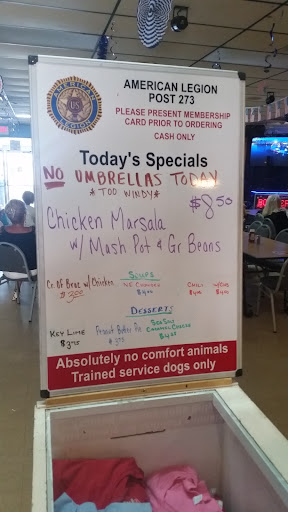 AMERICAN LEGION
POST 273
PLEASE PRESENT MEMBERSHIP
CARD PRIOR TO ORDERING
CASH ONLY
AMERICAN
US
LEGION
Today's Specials
NO UMBRELLAS TODAY
* TOO WINDY *
$8.50
Chicken Marsala
w/ Mash Pot & Gr Beans
SOUPS
Cr. OF Broc w/ Chicken
NE CHOWDER
CHILI
DESSERTS
KEY LIME
Peanut Butter Pie
SEA SALT
CARAMEL CHEESE
Absolutely no comfort animals
Trained service dogs only